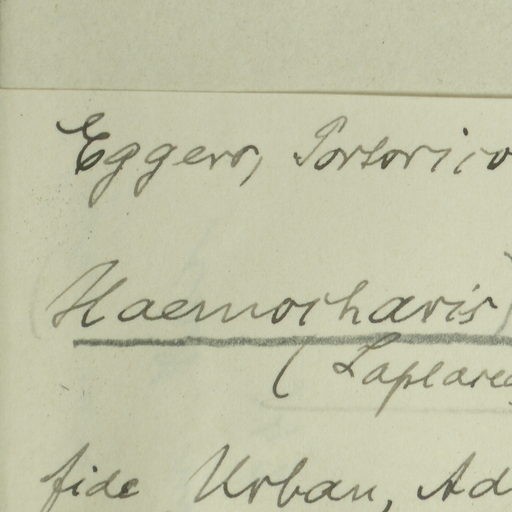 Eggers, Portorico
(Haemocharis)
(Laplacea
fide Urban, Ad